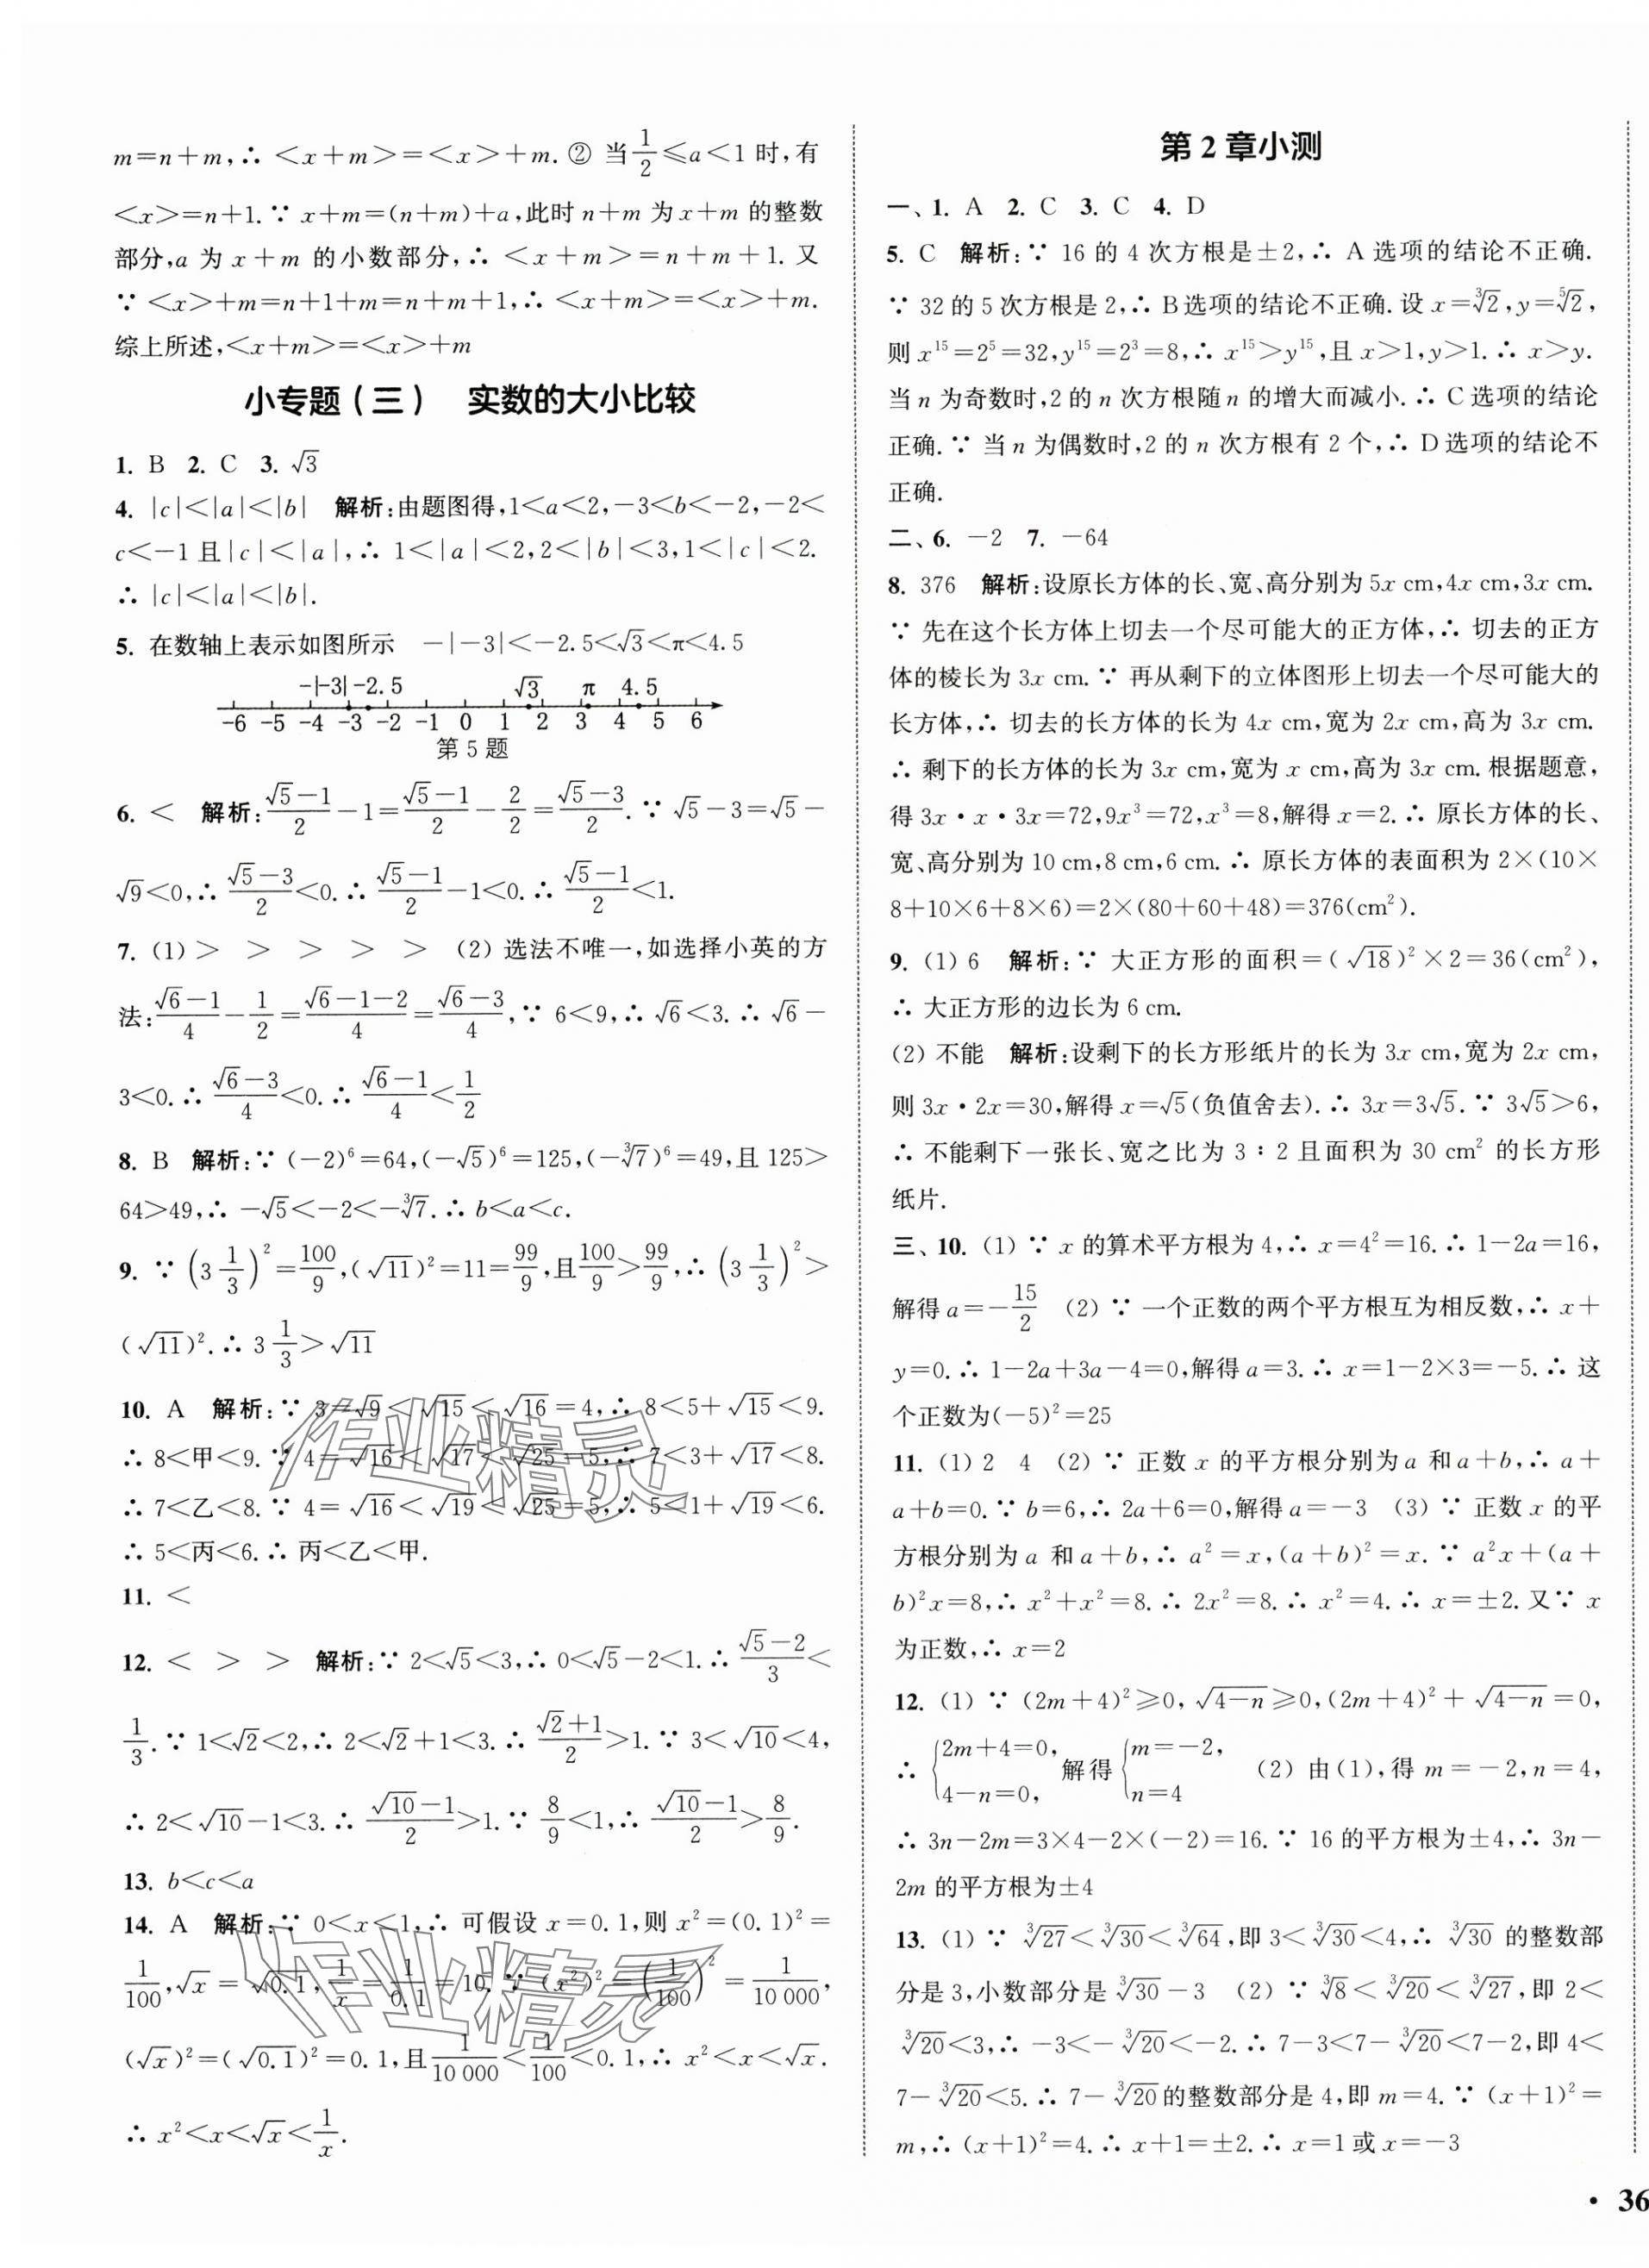 m=n+m,∴ <x+m>=<x>+m. ② 当1/2≤a<1 时,有
<x>=n+1.∵ x+m=(n+m)+a,此时 n+m 为 x+m 的整数
部分,a 为 x+m 的小数部分,∴ <x+m>=n+m+1. 又
∵ <x>+m=n+1+m=n+m+1,∴ <x+m>=<x>+m.
综上所述,<x+m>=<x>+m
小专题(三) 实数的大小比较
1. B 2. C 3. √3
4. |c|<|a|<|b| 解析:由题图得,1<a<2,-3<b<-2,-2<
c<-1 且|c|<|a|,∴ 1<|a|<2,2<|b|<3,1<|c|<2.
∴ |c|<|a|<|b|.
5. 在数轴上表示如图所示 -|-3|<-2.5<√3<π<4.5
-|-3| -2.5 √3 π 4.5
-6 -5 -4 -3 -2 -1 0 1 2 3 4 5 6
第 5 题
6. < 解析:(√5-1)/2-1=(√5-1)/2-2/2=(√5-3)/2.∵ √5-3=√5-
√9<0,∴ (√5-3)/2<0.∴ (√5-1)/2-1<0.∴ (√5-1)/2<1.
7. (1) > > > > > (2) 选法不唯一,如选择小英的方
法:(√6-1)/4-1/2=(√6-1-2)/4=(√6-3)/4,∵ 6<9,∴ √6<3.∴ √6-
3<0.∴ (√6-3)/4<0.∴ (√6-1)/4<1/2
8. B 解析:∵ (-2)⁶=64,(-√5)⁶=125,(-∛7)⁶=49,且 125>
64>49,∴ -√5<-2<-∛7.∴ b<a<c.
9. ∵ (3 1/3)²=100/9,(√11)²=11=99/9,且100/9>99/9,∴ (3 1/3)²>
(√11)².∴ 3 1/3>√11
10. A 解析:∵ 3=√9<√15<√16=4,∴ 8<5+√15<9.
∴ 8<甲<9.∵ 4=√16<√17<√25=5,∴ 7<3+√17<8.
∴ 7<乙<8.∵ 4=√16<√19<√25=5,∴ 5<1+√19<6.
∴ 5<丙<6.∴ 丙<乙<甲.
11. <
12. < > > 解析:∵ 2<√5<3,∴ 0<√5-2<1.∴ (√5-2)/3<
1/3.∵ 1<√2<2,∴ 2<√2+1<3.∴ (√2+1)/2>1.∵ 3<√10<4,
∴ 2<√10-1<3.∴ (√10-1)/2>1.∵ 8/9<1,∴ (√10-1)/2>8/9.
13. b<c<a
14. A 解析:∵ 0<x<1,∴ 可假设 x=0.1,则 x²=(0.1)²=
1/100,√x=√0.1,1/x=1/0.1=10.∵ (x²)²=(1/100)²=1/10 000,
(√x)²=(√0.1)²=0.1,且1/10 000<1/100<0.1,∴ x²<x<√x.
∴ x²<x<√x<1/x.
作业精灵
作业精灵
第 2 章小测
一、1. A 2. C 3. C 4. D
5. C 解析:∵ 16 的 4 次方根是±2,∴ A 选项的结论不正确.
∵ 32 的 5 次方根是 2,∴ B选项的结论不正确. 设 x=∛2,y=⁵√2,
则 x¹⁵=2⁵=32,y¹⁵=2³=8,∴ x¹⁵>y¹⁵,且 x>1,y>1.∴ x>y.
当 n 为奇数时,2 的 n 次方根随 n 的增大而减小.∴ C 选项的结论
正确.∵ 当 n 为偶数时,2 的 n 次方根有 2 个,∴ D 选项的结论不
正确.
二、6. -2 7. -64
8. 376 解析:设原长方体的长、宽、高分别为 5x cm,4x cm,3x cm.
∵ 先在这个长方体上切去一个尽可能大的正方体,∴ 切去的正方
体的棱长为 3x cm.∵ 再从剩下的立体图形上切去一个尽可能大的
长方体,∴ 切去的长方体的长为 4x cm,宽为 2x cm,高为 3x cm.
∴ 剩下的长方体的长为 3x cm,宽为 x cm,高为 3x cm. 根据题意,
得 3x·x·3x=72,9x³=72,x³=8,解得 x=2.∴ 原长方体的长、
宽、高分别为 10 cm,8 cm,6 cm.∴ 原长方体的表面积为 2×(10×
8+10×6+8×6)=2×(80+60+48)=376(cm²).
9. (1) 6 解析:∵ 大正方形的面积=(√18)²×2=36(cm²),
∴ 大正方形的边长为 6 cm.
(2) 不能 解析:设剩下的长方形纸片的长为 3x cm,宽为 2x cm,
则 3x·2x=30,解得 x=√5(负值舍去).∴ 3x=3√5.∵ 3√5>6,
∴ 不能剩下一张长、宽之比为 3∶2 且面积为 30 cm² 的长方形
纸片.
三、10. (1) ∵ x 的算术平方根为 4,∴ x=4²=16.∴ 1-2a=16,
解得 a=-15/2 (2) ∵ 一个正数的两个平方根互为相反数,∴ x+
y=0.∴ 1-2a+3a-4=0,解得 a=3.∴ x=1-2×3=-5.∴ 这
个正数为(-5)²=25
11. (1) 2 4 (2) ∵ 正数 x 的平方根分别为 a 和 a+b,∴ a+
a+b=0.∵ b=6,∴ 2a+6=0,解得 a=-3 (3) ∵ 正数 x 的平
方根分别为 a 和 a+b,∴ a²=x,(a+b)²=x.∵ a²x+(a+
b)²x=8,∴ x²+x²=8.∴ 2x²=8.∴ x²=4.∴ x=±2. 又∵ x
为正数,∴ x=2
12. (1) ∵ (2m+4)²≥0,√(4-n)≥0,(2m+4)²+√(4-n)=0,
∴ {2m+4=0, 4-n=0, 解得 {m=-2, n=4 (2) 由(1),得 m=-2,n=4,
∴ 3n-2m=3×4-2×(-2)=16.∵ 16 的平方根为±4,∴ 3n-
2m 的平方根为±4
13. (1) ∵ ∛27<∛30<∛64,即 3<∛30<4,∴ ∛30 的整数部
分是 3,小数部分是∛30-3 (2) ∵ ∛8<∛20<∛27,即 2<
∛20<3,∴ -3<-∛20<-2.∴ 7-3<7-∛20<7-2,即 4<
7-∛20<5.∴ 7-∛20的整数部分是 4,即 m=4.∵ (x+1)²=
m,∴ (x+1)²=4.∴ x+1=±2.∴ x=1 或 x=-3
· 36